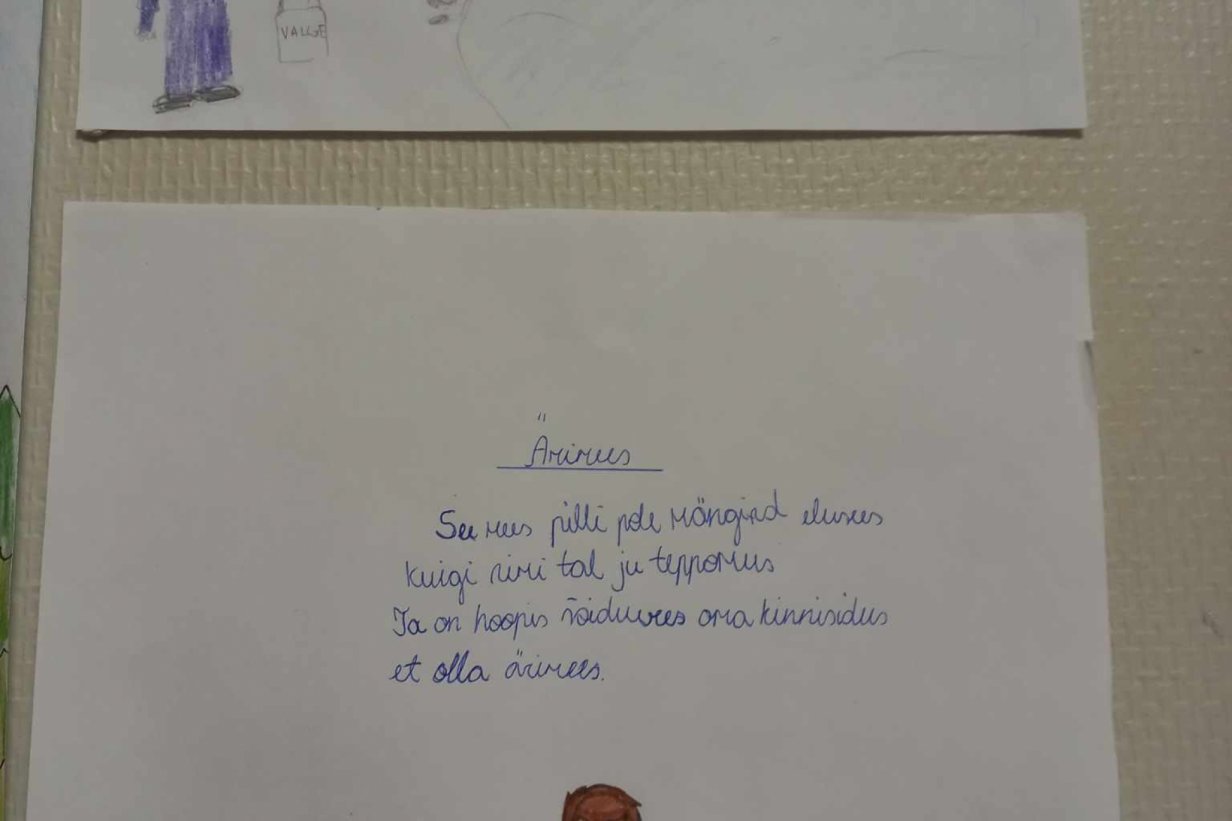 VALGE
Ärimees
See mees pilli pole mänginud elusees
kuigi nimi tal ju
Ta on hoopis võidumees oma kinnisidus
et olla ärimees.